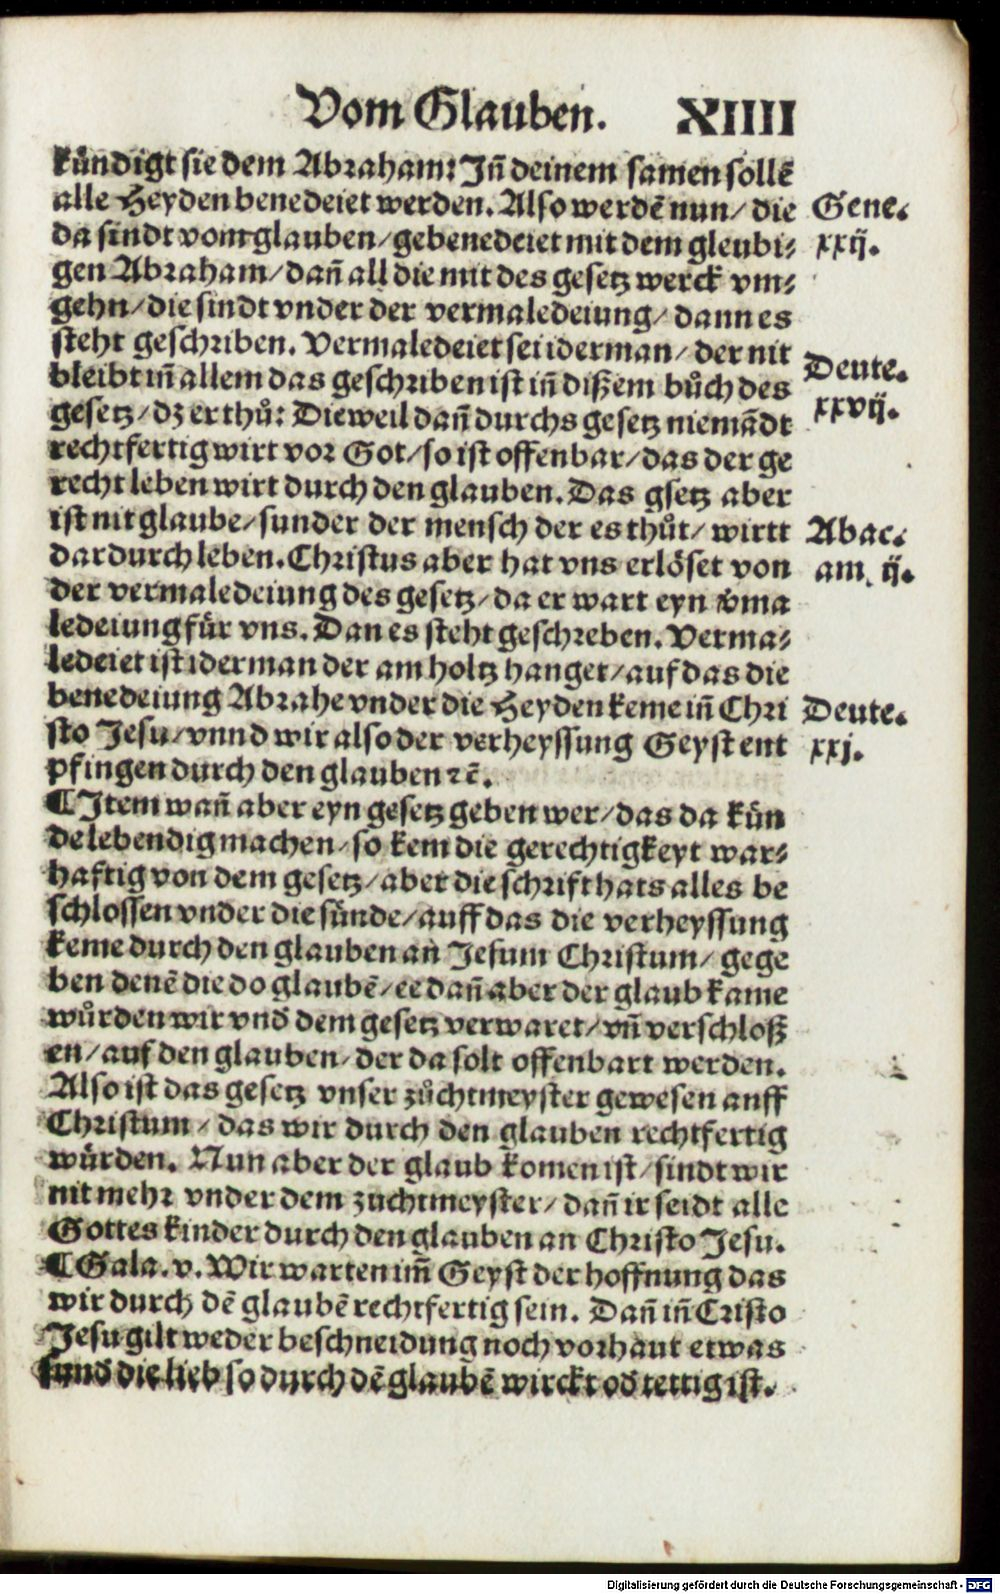 Vom Glauben. XIIII
kündigt sie dem Abraham: Jñ deinem samen sollē
alle Heyden benedeiet werden. Also werdē nun/ die
da sindt vom glauben/ gebenedeiet mit dem gleubi⸗
gen Abraham/ dañ all die mit des gesetz werck vm⸗
gehn/ die sindt vnder der vermaledeiung/ dann es
steht geschriben. Vermaledeiet sei iderman/ der nit
bleibt iñ allem das geschriben ist iñ dißem bůch des
gesetz/ dz er thů: Dieweil dañ durchs gesetz niemādt
rechtfertig wirt vor Got/ so ist offenbar/ das der ge
recht leben wirt durch den glauben. Das gsetz aber
ist nit glaube/ sunder der mensch der es thůt/ wirtt
dardurch leben. Christus aber hat vns erlöset von
der vermaledeiung des gesetz/ da er wart eyn v̄ma
ledeiung für vns. Dan es steht geschreben. Verma⸗
ledeiet ist iderman der am holtz hanget/ auf das die
benedeiung Abrahe vnder die Heyden keme iñ Chri
sto Jesu/ vnnd wir also der verheyssung Geyst ent
pfingen durch den glauben ꝛcē.
¶ Jtem wañ aber eyn gesetz geben wer/ das da kün
de lebendig machen/ so kem die gerechtigkeyt war⸗
haftig von dem gesetz/ aber die schrift hats alles be
schlossen vnder die sünde/ auff das die verheyssung
keme durch den glauben an Jesum Christum/ gege
ben denē die do glaubē/ ee dañ aber der glaub kame
wůrden wir vnd̄ dem gesetz verwaret/ vñ verschloß
en/ auf den glauben/ der da solt offenbart werden.
Also ist das gesetz vnser zůchtmeyster gewesen anff
Christum/ das wir durch den glauben rechtfertig
würden. Nun aber der glaub komen ist/ sindt wir
nit mehr vnder dem zuchtmeyster/ dañ ir seidt alle
Gottes kinder durch den glauben an Christo Jesu.
¶ Gala. v. Wir warten im̃ Geyst der hoffnung das
wir durch dē glaubē rechtfertig sein. Dañ iñ Cristo
Jesu gilt weder beschneidung noch vorhaut etwas
sund̄ die lieb so durch dē glaubē wirckt od̄ tettig ist.
Gene.
xxij.
Deute.
xxvij.
Abac.
am. ij.
Deute.
xxj.
Digitalisierung gefördert durch die Deutsche Forschungsgemeinschaft - DFG